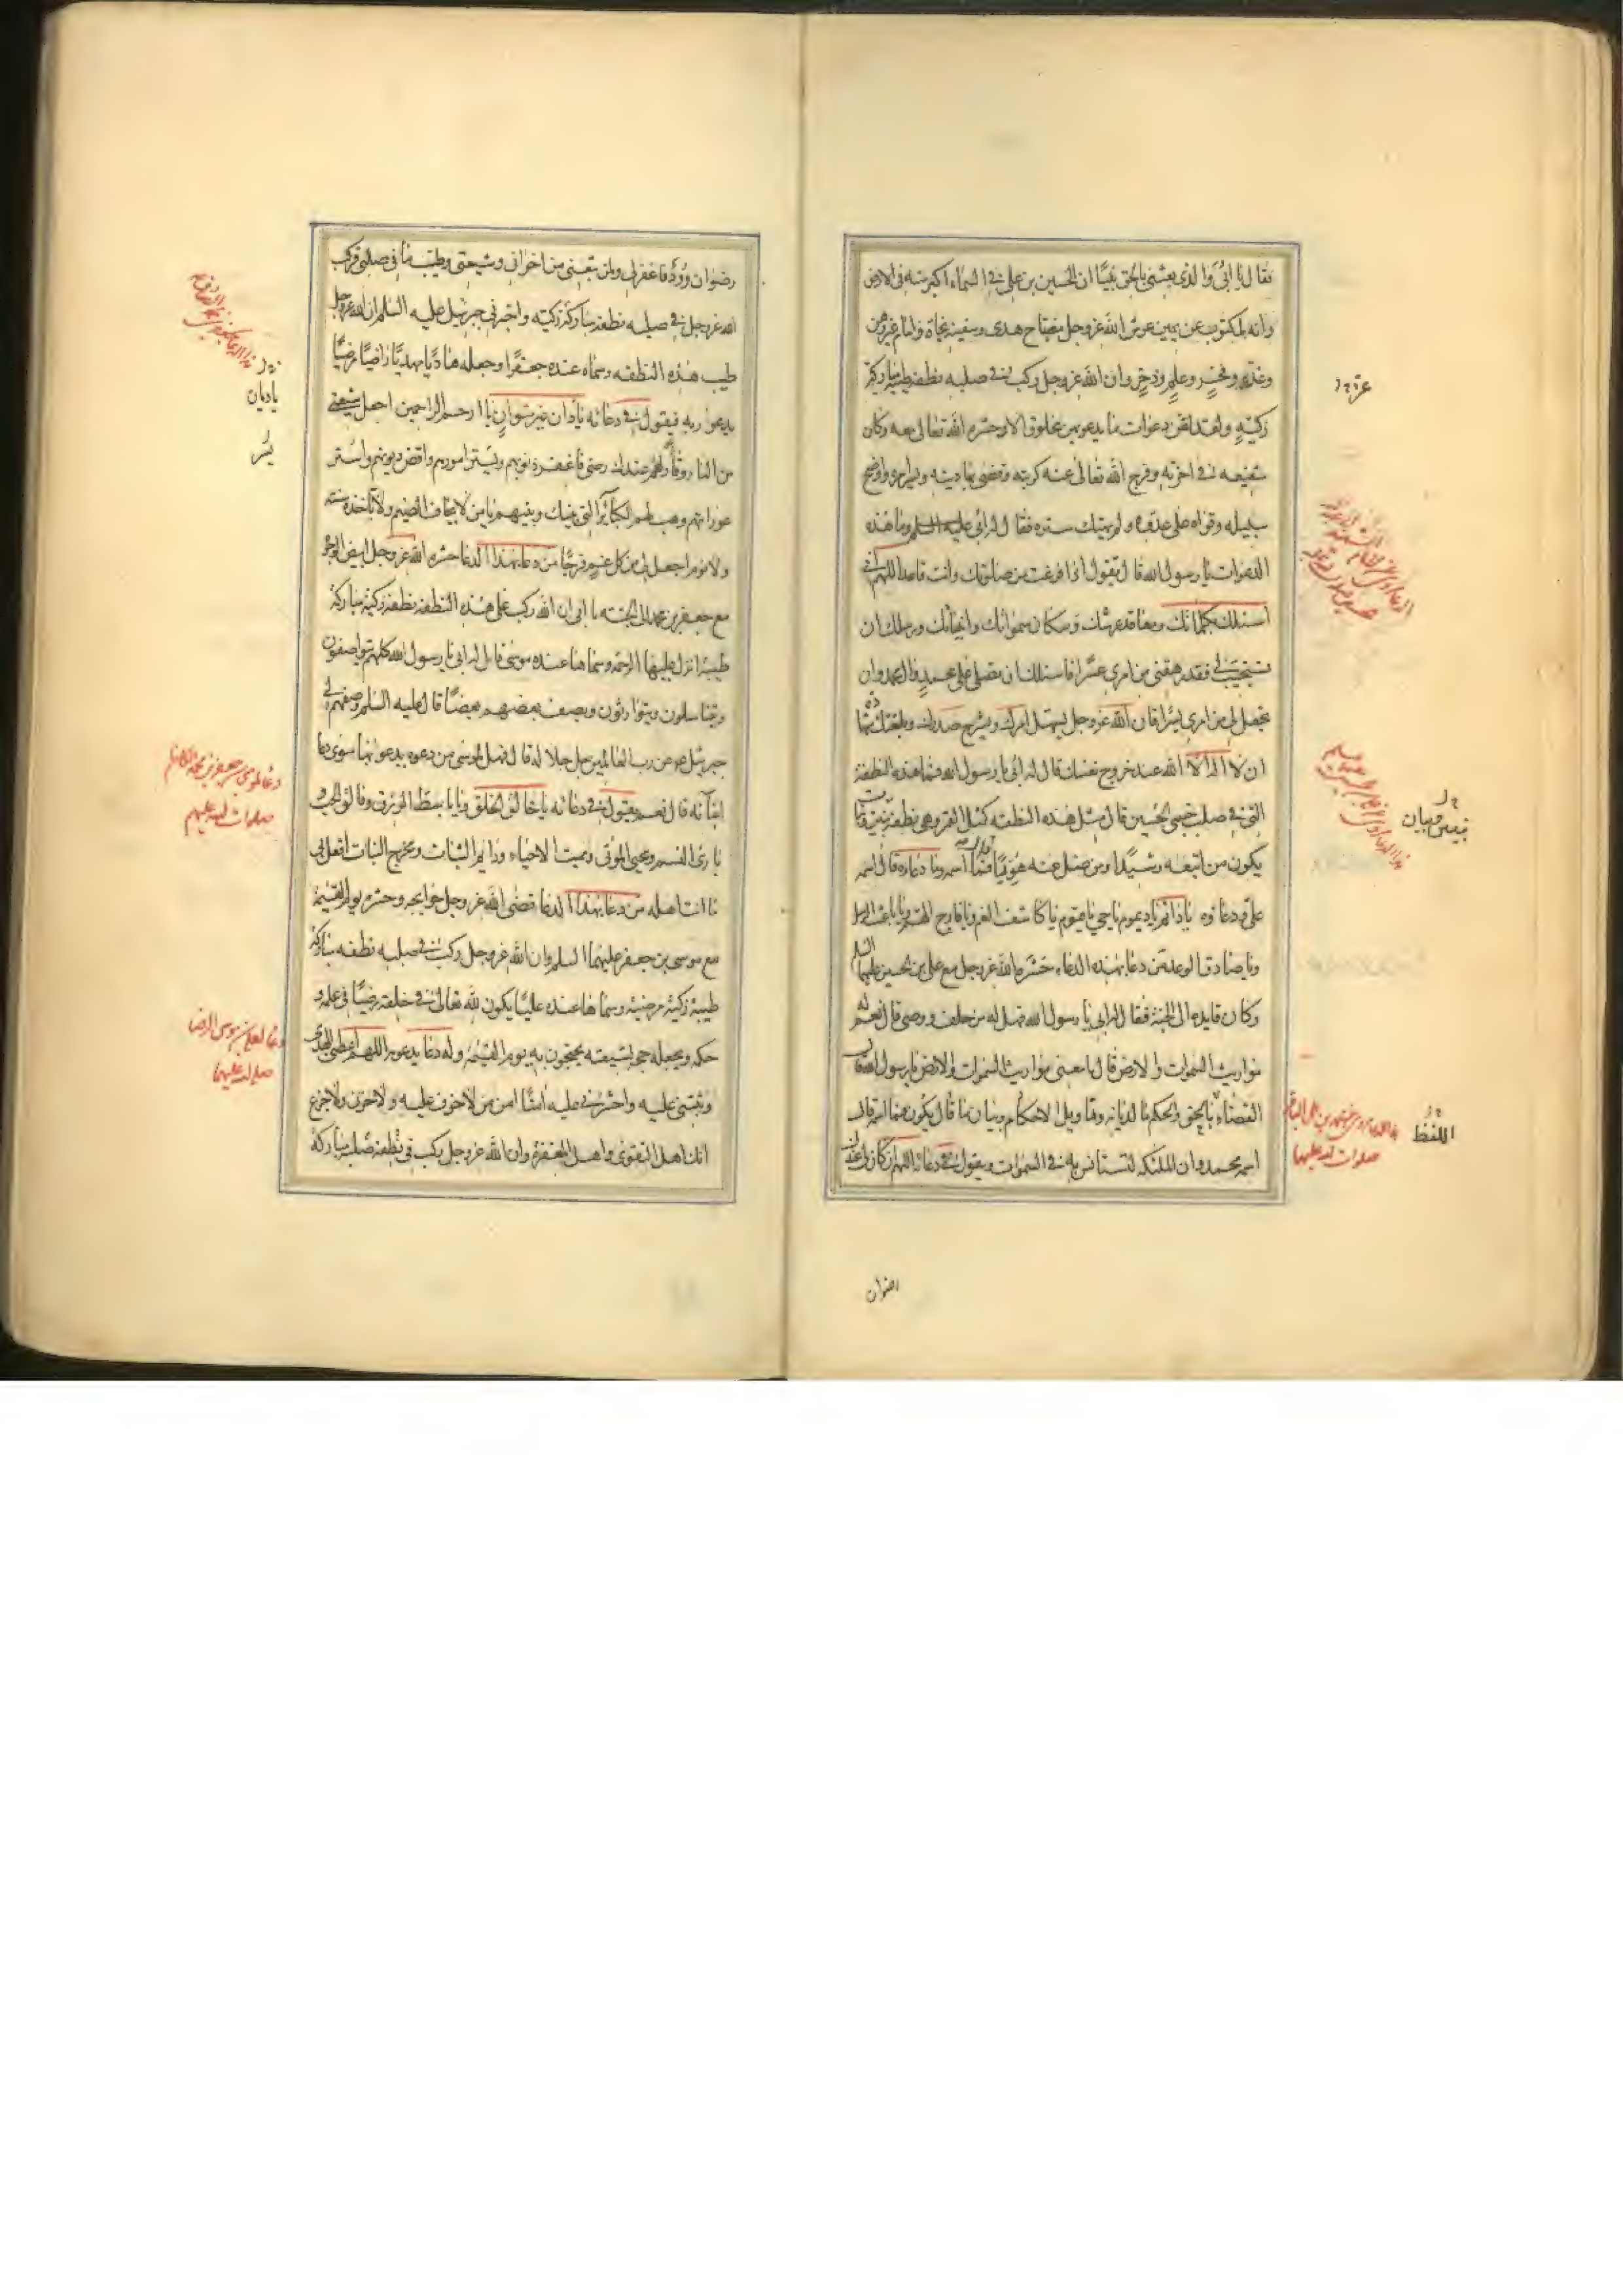 فقال يا ابي والذي بعثني بالحق نبيا ان الحسين بن علي في السماء اكبر منه في الارض
وانه لمكتوب عن يمين عرش الله عز وجل مصباح هدى وسفينة نجاة وامام غير وهن
وعز وفخر وعلم وذخر وان الله عز وجل ركب في صلبه نطفة طيبة مباركة
زكية ولقد لقن دعوات ما يدعو بهن مخلوق الا وحشره الله تعالى معه وكان
شفيعه في اخرته وفرج الله تعالى عنه كربه وقضى بها دينه ويسر امره واوضح
سبيله وقواه على عدوه ولم يهتك ستره فقال له ابي وما هذه
الدعوات يا رسول الله قال تقول اذا فرغت من صلوتك وانت قاعد اللهم اني
اسئلك بكلماتك ومعاقد عرشك وسكان سمواتك وانبيائك ورسلك ان
تستجيب لي فقد رهقني من امري عسرا فاسئلك ان تصلي على محمد وال محمد وان
تجعل لي من امري يسرا فان الله عز وجل يسهل امرك ويشرح صدرك ويلقنك شهادة
ان لا اله الا الله عند خروج نفسك قال له ابي يا رسول الله فما هذه النطفة
التي في صلب حبيبي الحسين قال مثل هذه النطفة كمثل القمر وهي نطفة
يكون من اتبعه رشيدا ومن ضل عنه هويا فما اسمه وما دعاؤه قال اسمه
علي ودعاؤه يا دائم يا ديموم يا حي يا قيوم يا كاشف الغم ويا فارج الهم ويا باعث الرسل
ويا صادق الوعد من دعا بهذه الدعاء حشره الله عز وجل مع علي بن الحسين عليهما السلم
وكان قايده الى الجنة فقال له ابي يا رسول الله فهل له من خلف ووصي قال نعم له
مواريث السموات والارض قال ما معنى مواريث السموات والارض يا رسول الله قال
القضاء بالحق والحكم بالديانة وتاويل الاحكام وبيان ما يكون قال فما اسمه قال
اسمه محمد وان الملئكه لتستانس به في السموات ويقول في دعائه اللهم ان كان لي عندك
رضوان وود فاغفر لي ولمن تبعني من اخواني وشيعتي وطيب ما في صلبي فركب
الله عز وجل في صلبه نطفة مباركة زكية واخبرني جبرئيل عليه السلم ان الله عز وجل
طيب هذه النطفه وسماه عنده جعفرا وجعله هاديا مهديا راضيا مرضيا
يدعو ربه فيقول في دعائه يا دان غير متوان يا ارحم الراحمين اجعل لشيعتي
من النار وقاء ولهم عندك رضى فاغفر ذنوبهم ويسر امورهم واقض ديونهم واستر
عوراتهم وهب لهم الكبائر التي بينك وبينهم يا من لا يخاف الضيم ولا تاخذه سنة
ولا نوم اجعل لي من كل غم فرجا من دعا بهذا الدعا حشره الله عز وجل ابيض الوجه
مع جعفر بن محمد الى الجنه يا ابي ان الله ركب على هذه النطفة نطفة زكية مباركة
طيبة انزل عليها الرحمة وسماها عنده موسى قال له ابي يا رسول الله كلهم يتواصفون
ويتناسلون ويتوارثون ويصف بعضهم بعضا قال عليه السلم وصفهم لي
جبرئيل عن رب العالمين جل جلاله قال فهل لموسى من دعوة يدعو بها سوى دعاء
ابائه قال نعم يقول في دعائه يا خالق الخلق ويا باسط الرزق وفالق الحب و
بارئ النسم ومحيي الموتى ومميت الاحياء ودايم الثبات ومخرج النبات افعل بي
ما انت اهله من دعا بهذا الدعا قضى الله عز وجل حوايجه وحشره يوم القيمة
مع موسى بن جعفر عليهما السلم وان الله عز وجل ركب في صلبه نطفه مباركة
طيبة زكية مرضية وسماها عنده عليا يكون لله تعالى في خلقه رضيا في علمه و
حكمه ويجعله حجة لشيعته يحتجون به يوم القيمة وله دعا يدعو به اللهم اعطني الهدى
وثبتني عليه واحشرني عليه امنا امن من لا خوف عليه ولا حزن ولا جزع
انك اهل التقوى واهل المغفرة وان الله عز وجل ركب في نطفة مباركة
يا ديان
يسر
دعا لموسى بن جعفر بن محمد الكاظم
صلوات الله عليهم
دعا لعلي بن موسى الرضا
صلوات الله عليهما
تبيين وبيان
اللفظ
صلوات الله عليهما
رضوان